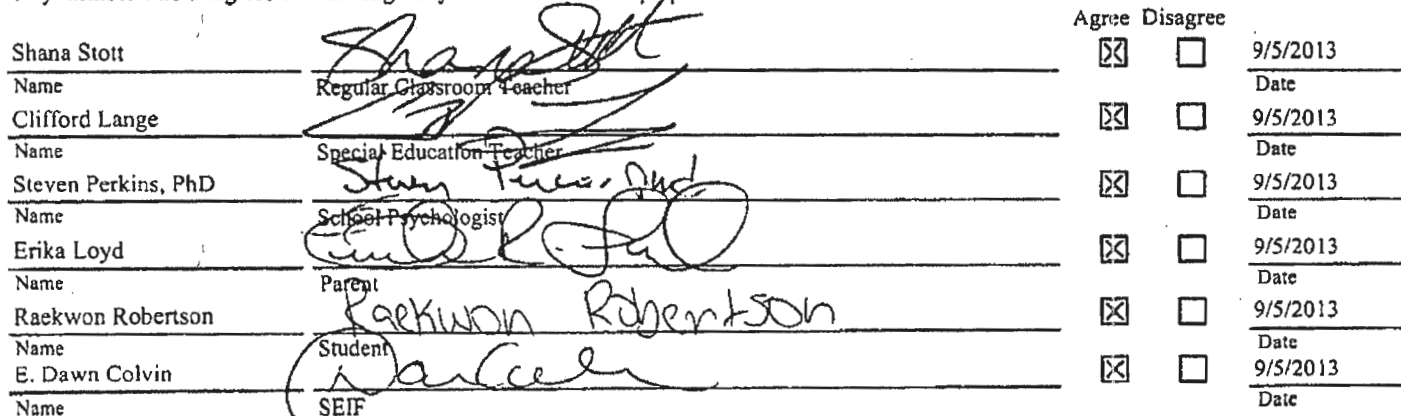 Agree Disagree
Shana Stott Shana Stott 9/5/2013
Name Regular Classroom Teacher Date
Clifford Lange 9/5/2013
Name Special Education Teacher Date
Steven Perkins, PhD 9/5/2013
Name School Psychologist Date
Erika Loyd 9/5/2013
Name Parent Date
Raekwon Robertson Raekwon Robertson 9/5/2013
Name Student Date
E. Dawn Colvin 9/5/2013
Name SEIF Date